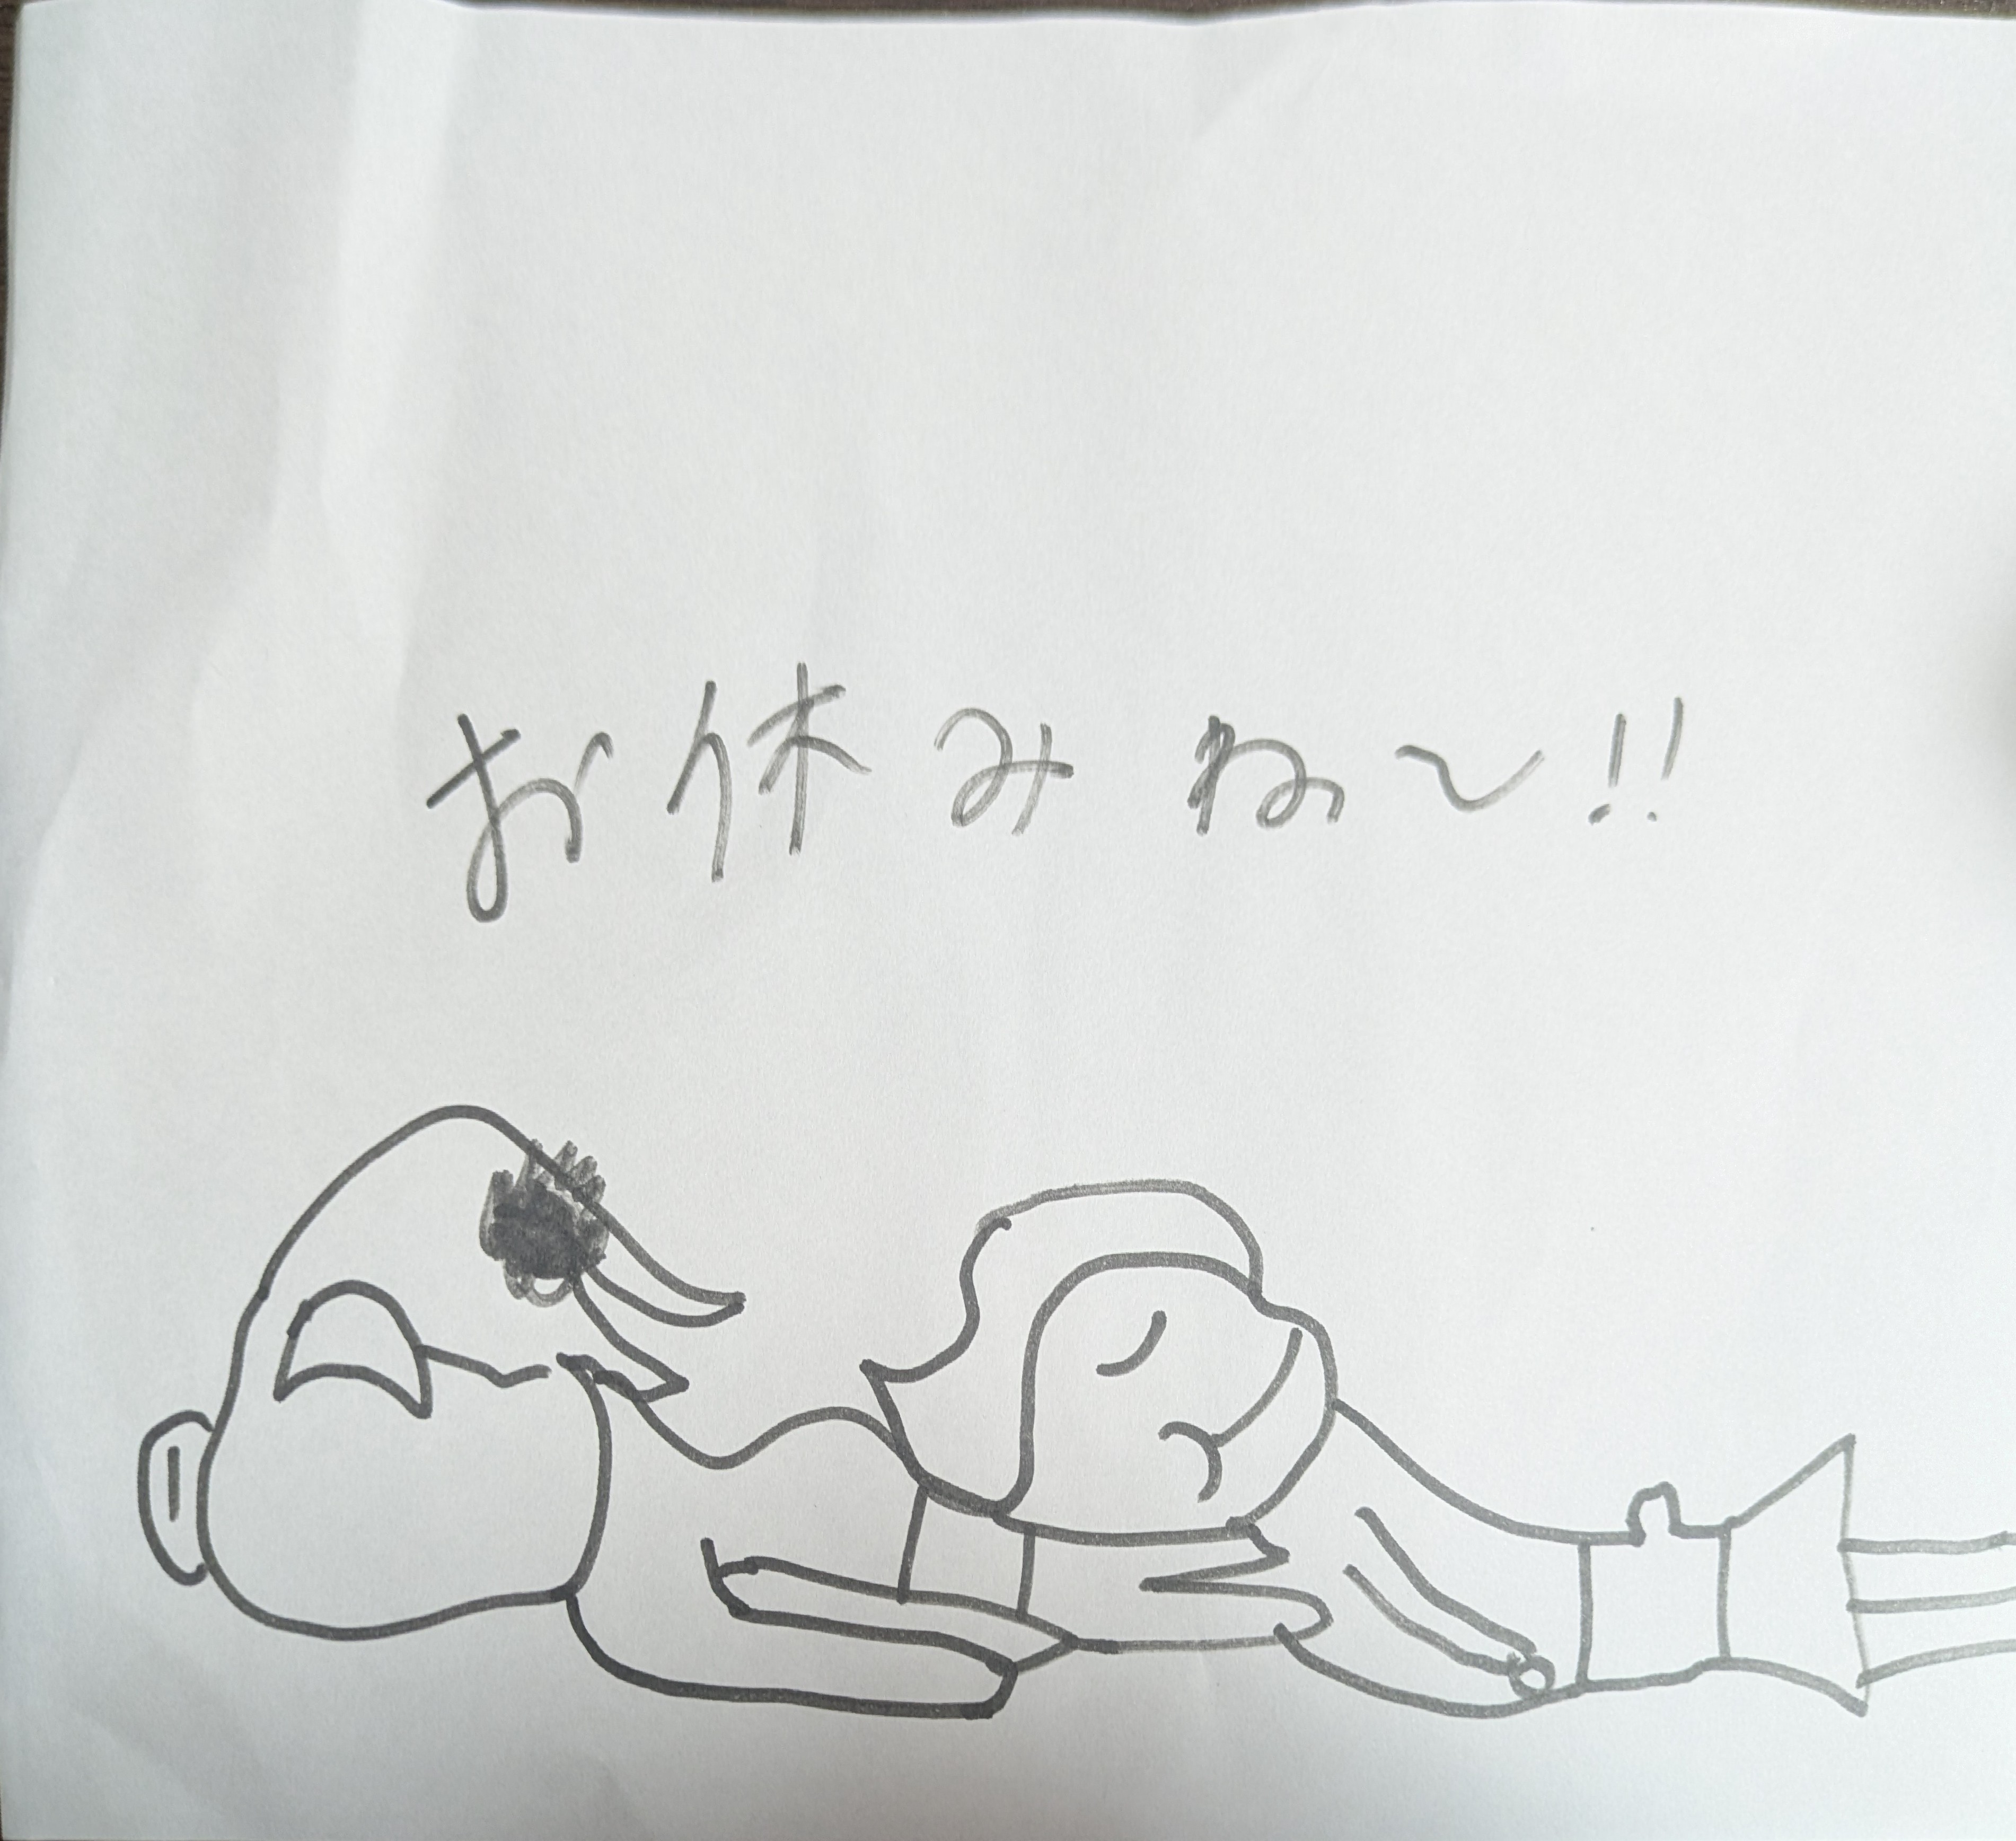 お休みね〜!!